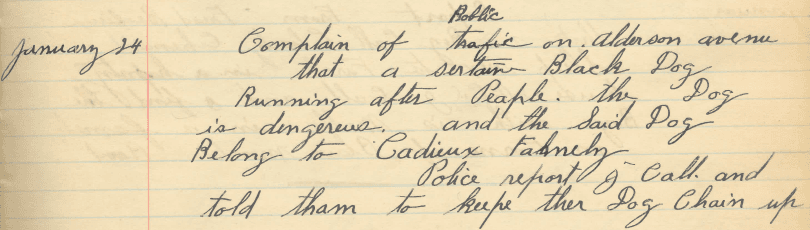 Public
January 24 Complain of trafic on. Alderson avenu
that a sertain Black Dog
Running after Peaple. the Dog
is dengereus. and the Said Dog
Belong to Cadieux
Police report Call. and
told tham to keepe ther Dog Chain up